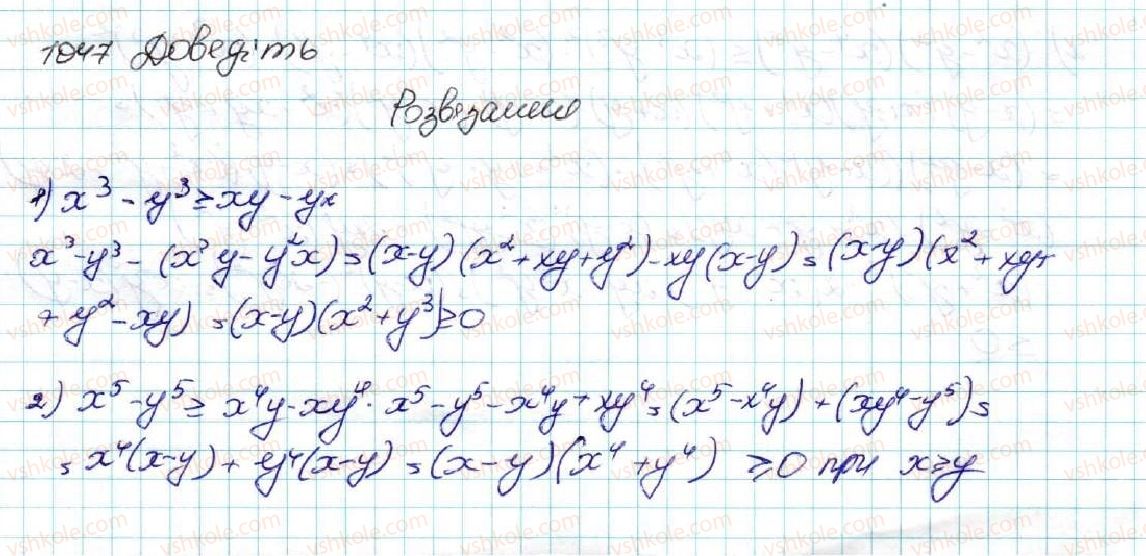 1047 Доведіть
Розвязання
1) x³ - y³ ≥ xy - yx
x³ - y³ - (x³y - y²x) = (x-y)(x² + xy + y²) - xy(x-y) = (x-y)(x² + xy +
+ y² - xy) = (x-y)(x² + y³) ≥ 0
2) x⁵ - y⁵ ≥ x⁴y - xy⁴. x⁵ - y⁵ - x⁴y + xy⁴ = (x⁵ - x⁴y) + (xy⁴ - y⁵) =
= x⁴(x-y) + y⁴(x-y) = (x-y)(x⁴ + y⁴) ≥ 0 при x ≥ y
vshkole.com